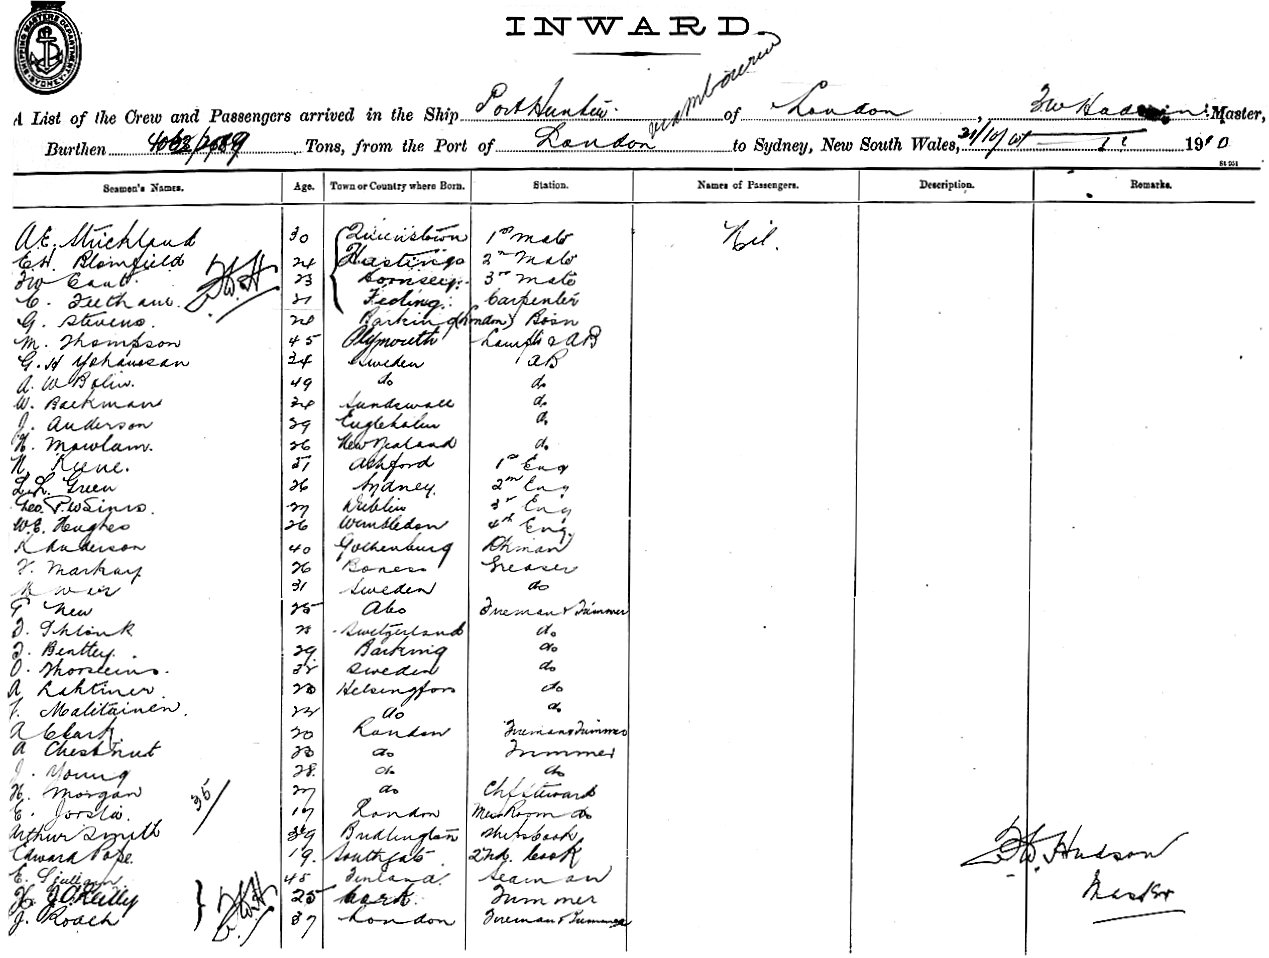 SHIPPING MASTERS DEPARTMENT SYDNEY
INWARD.
A List of the Crew and Passengers arrived in the Ship Port Hunter of London, FW Hudson Master,
via Melbourne
Burthen Tons, from the Port of London to Sydney, New South Wales, 1910
Seamen's Names. Age. Town or Country where Born. Station. Names of Passengers. Description. Remarks.
A.E. Strickland 30 Queenstown 1st Mate Nil.
E.H. Blomfield 24 Hastings 2nd Mate
FW Cant 23 Hornsey. 3rd Mate
C. Feetham. 21 Carpenter
G. Stevens. 28 Barking (London) Bosn
M. Thompson 45 Plymouth Lamps & AB
G. H Yohanssan 24 Sweden AB
A. W Bolin. 49 do do
W. Backman 24 Sundswall do
J. Anderson 29 Engleholm do
H. Mowlam. 26 New Zealand do
N. Keene. 31 Ashford 1st Eng
L.L. Green 26 Sydney. 2nd Eng
Geo. P.W Sims. 27 Dublin 3rd Eng
W.E. Hughes 26 Wimbledon 4th Eng.
K Anderson 40 Gothenburg Dkman
F. Markay 26 Boness Greaser
31 Sweden do
New 25 Abo Fireman & Trimmer
Switzerland do
Bentley. 29 Barking do
O. Thorsteins. Sweden do
A Lahtinen 23 Helsingfors do
Malitainen. do do
A Clark. 20 London Fireman & Trimmer
A Chestnut 23 do Trimmer
J. Young 28. do do
H. Morgan 27 do Chf Steward
35
E. 17 London Mess Room do
Arthur Smith 39 Bridlington Ships Cook
Edward Pope. 19. Southgate 2nd. Cook
E. 45 Finland. Seaman
J. O'Reilly 25 Cork Trimmer
J. Roach 37 London Fireman & Trimmer
F.W. Hudson
Master